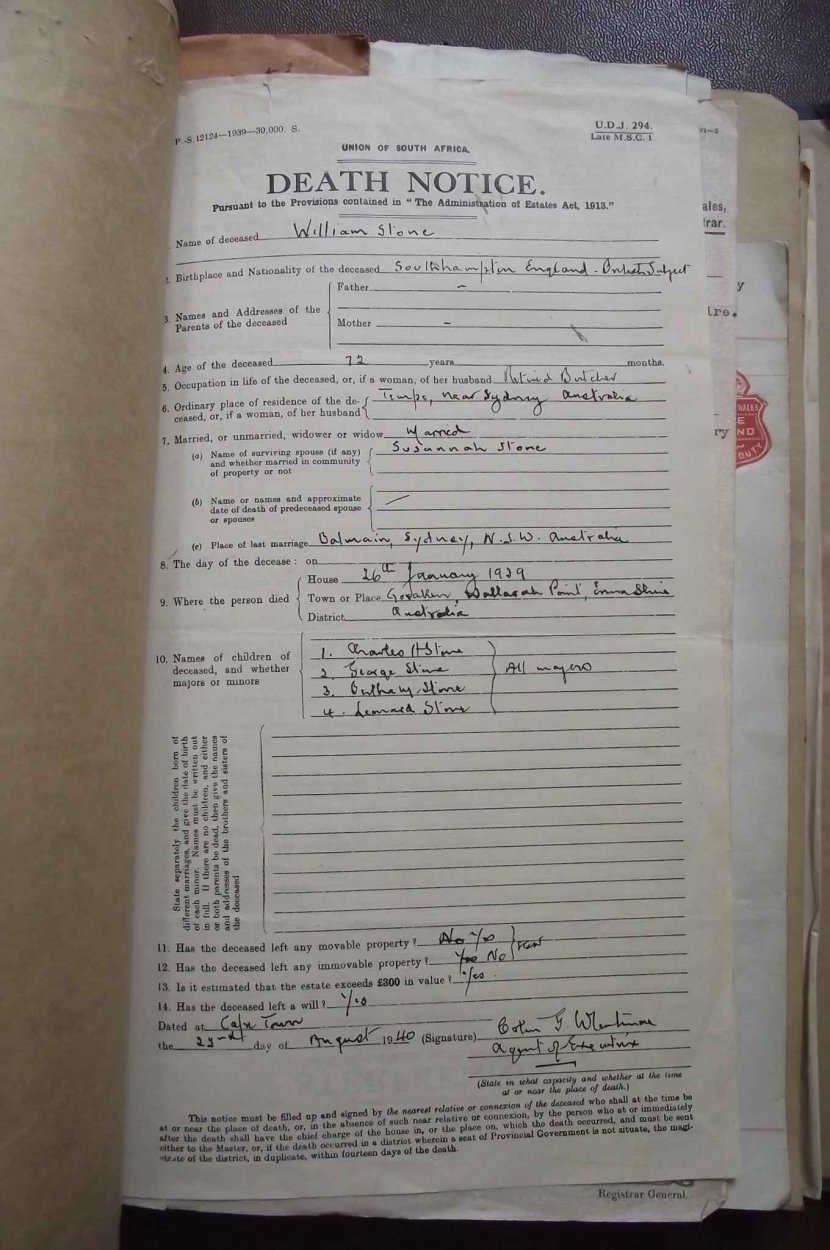 P.-S.12124—1939—30,000. S.
U.D.J. 294.
Late M.S.C. 1
UNION OF SOUTH AFRICA.
DEATH NOTICE.
Pursuant to the Provisions contained in "The Administration of Estates Act, 1913."
Name of deceased William Stone
2. Birthplace and Nationality of the deceased Southampton England - British Subject
3. Names and Addresses of the Parents of the deceased
Father —
Mother —
4. Age of the deceased 72 years months.
5. Occupation in life of the deceased, or, if a woman, of her husband Retired Butcher
6. Ordinary place of residence of the de-
ceased, or, if a woman, of her husband
Tempe, near Sydney Australia
7. Married, or unmarried, widower or widow Married
(a) Name of surviving spouse (if any)
and whether married in community
of property or not
Susannah Stone
(b) Name or names and approximate
date of death of predeceased spouse
or spouses
(c) Place of last marriage Balmain, Sydney, N.S.W. Australia
8. The day of the decease: on
26th January 1939
9. Where the person died
House
Town or Place Wallarah Point, Shire
District Australia
10. Names of children of
deceased, and whether
majors or minors
1. Charles H Stone
2. George Stone
3. Stone
4. Leonard Stone
All majors
State separately the children born of
different marriages, and give the date of birth
of each minor. Names must be written out
in full. If there are no children, and either
or both parents be dead, then give the names
and addresses of the brothers and sisters of
the deceased
11. Has the deceased left any movable property? No Yes
12. Has the deceased left any immovable property? Yes No
13. Is it estimated that the estate exceeds £300 in value? Yes
14. Has the deceased left a will? Yes
Dated at Cape Town
the 23rd day of August 1940 (Signature) Colin G.
Agent of Executrix
(State in what capacity and whether at the time
at or near the place of death.)
This notice must be filled up and signed by the nearest relative or connexion of the deceased who shall at the time be
at or near the place of death, or, in the absence of such near relative or connexion, by the person who at or immediately
after the death shall have the chief charge of the house in, or the place on, which the death occurred, and must be sent
either to the Master, or, if the death occurred in a district wherein a seat of Provincial Government is not situate, the magi-
strate of the district, in duplicate, within fourteen days of the death.
Registrar General.